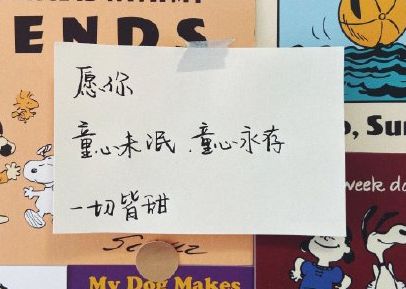 ENDS
愿你
童心未泯.童心永存
一切皆甜
o, Sun
week do
My Dog Makes